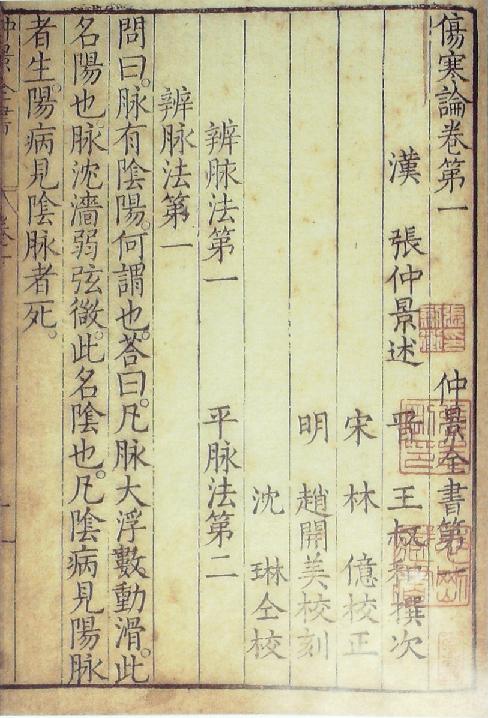 傷寒論卷第一 仲景全書第
漢 張仲景述 晉 王叔和撰次
宋 林億校正
明 趙開美校刻
沈琳仝校
辨脉法第一 平脉法第二
辨脉法第一
問曰。脉有陰陽。何謂也。荅曰。凡脉大浮數動滑。此
名陽也。脉沈濇弱弦微。此名陰也。凡陰病見陽脉
者生。陽病見陰脉者死。